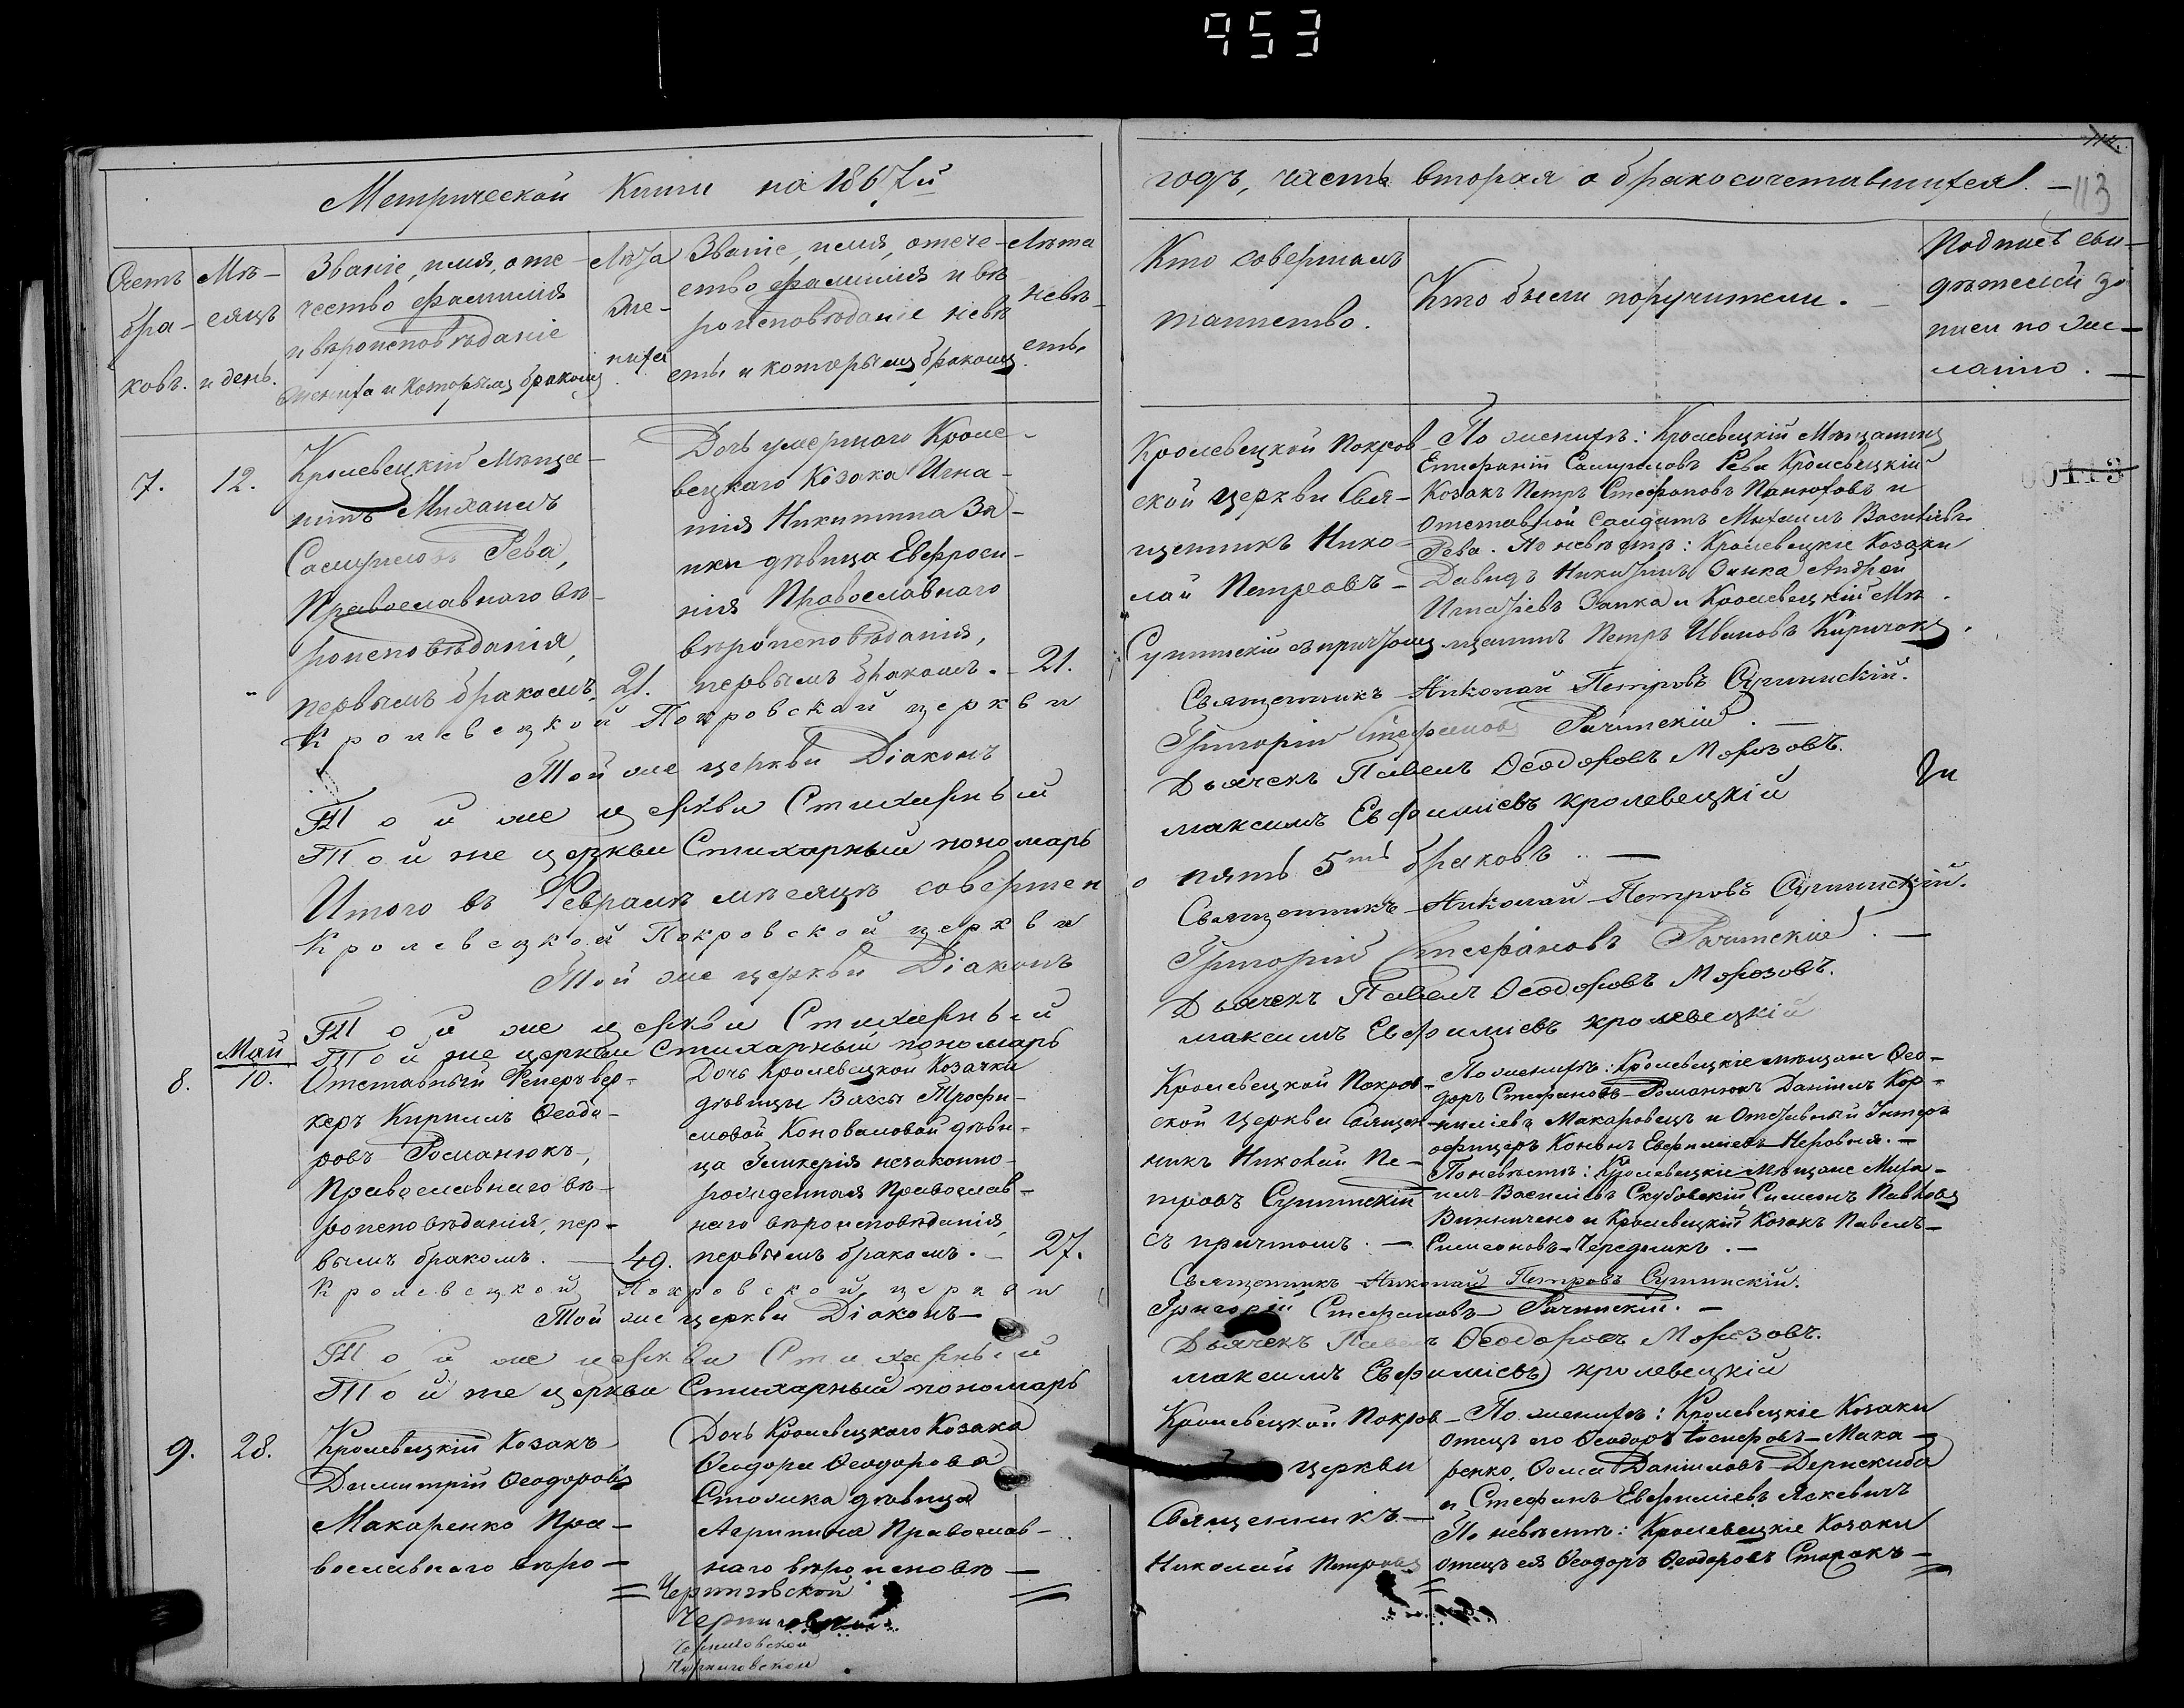 953
Метрической Книги на 1867й
годъ, часть вторая о бракосочетавшихся. —
113
Счетъ бра- ковъ.
Мѣ- сяцъ и день.
Званіе, имя, оте- чество фамилия и вѣроисповѣданіе жениха и которымъ бракомъ
Лѣта же- ниха
Званіе, имя, отече- ство фамилия и вѣ роисповѣданіе невѣ сты и которымъ бракомъ.
Лѣта невѣ- сты
Кто совершалъ таинство.
Кто были поручители. —
Подпись сви- дѣтелей за- писи по же- ланію. —
7.
12.
Кролевецкій мѣща-
нинъ Михаилъ
Самуиловъ Рева,
Православнаго вѣ-
роисповѣданія,
первымъ бракомъ.
21.
Дочь умершаго Кроле-
вецкаго Козака Игна-
тія Никитина За-
ики дѣвица Евфроси-
нія Православнаго
вѣроисповѣданія,
первымъ бракомъ. —
21.
Кролевецкой Покров
ской церкви Свя-
щенникъ Нико-
лай Петровъ —
Сулимскій съ причтомъ
По женихѣ: Кролевецкій Мѣщанинъ
Епифаній Самуиловъ Рева Кролевецкій
Козакъ Петръ Стефановъ Панютовъ и
отставной солдатъ Михаилъ Васильевъ
Рева. По невѣстѣ: Кролевецкіе Козаки
Давидъ Никитинъ Заика Андрей
Игнатіевъ Заика и Кролевецкій Мѣ-
щанинъ Петръ Ивановъ Киричокъ.
Кролевецкой Покровской церкви
Священникъ Николай Петровъ Сулимскій.
Той же церкви Діаконъ
Григорій Стефановъ Рачинскій. —
Той же церкви Стихарный
Дьячекъ Павелъ Ѳеодоровъ Морозовъ.
Той же церкви Стихарный пономарь
максимъ Евфиміевъ кролевецкій
Итого въ Февралѣ мѣсяцѣ совершен
о пять 5ть браковъ. —
Кролевецкой Покровской церкви
Священникъ Николай Петровъ Сулимскій.
Той же церкви Діаконъ
Григорій Стефановъ Рачинскій. —
Той же церкви Стихарный
Дьячекъ Павелъ Ѳеодоровъ Морозовъ.
Той же церкви Стихарный пономарь
максимъ Евфиміевъ кролевецкій
Май
8.
10.
Отставный Феперъвер-
керъ Кириллъ Ѳеодо-
ровъ Романюкъ,
Православнаго вѣ-
роисповѣданія, пер-
вымъ бракомъ. —
49.
Дочь Кролевецкой Козачки
дѣвицы Вассы Трофи-
мовой Коноваловой дѣви-
ца Гликерія незаконно-
рожденная Православ-
наго вѣроисповѣданія,
первымъ бракомъ. —
27.
Кролевецкой Покров-
ской Церкви Священ-
никъ Николай Пе-
тровъ Сулимскій
съ причтомъ. —
По женихѣ: Кролевецкіе мѣщане Ѳео-
доръ Стефановъ Романюкъ Даніилъ Кор-
ниліевъ Макаровецъ и Отставный Унтеръ
офицеръ Кононъ Евфиміевъ Неровня. —
По невѣстѣ: Кролевецкіе Мѣщане Миха-
илъ Василіевъ Скубовскій Симеонъ Павловъ
Винниченко и Кролевецкій Козакъ Павелъ —
Симеоновъ Чередникъ. —
Кролевецкой Покровской церкви
Священникъ Николай Петровъ Сулимскій.
Той же церкви Діаконъ —
Григорій Стефановъ Рачинскій. —
Той же церкви Стихарный
Дьячекъ Павелъ Ѳеодоровъ Морозовъ.
Той же церкви Стихарный пономарь
максимъ Евфиміевъ кролевецкій
9.
28.
Кролевецкій Козакъ
Димитрій Ѳеодоровъ
Макаренко Пра-
вославнаго вѣро-
Дочь Кролевецкаго Козака
Ѳеодора Ѳеодорова
дѣвица
Агрипина Православ-
наго вѣроисповѣ —
Кролевецкой Покров
церкви
Священникъ —
Николай Петровъ
По женихѣ: Кролевецкіе Козаки
отецъ его Ѳеодоръ Іосифовъ Мака-
ренко, Ѳома Даніиловъ Дернскиба
и Стефанъ Евфиміевъ Яскевичъ
По невѣстѣ: Кролевецкіе Козаки
отецъ ея Ѳеодоръ Ѳеодоровъ
Черниговской
Черниговской
Черниговской